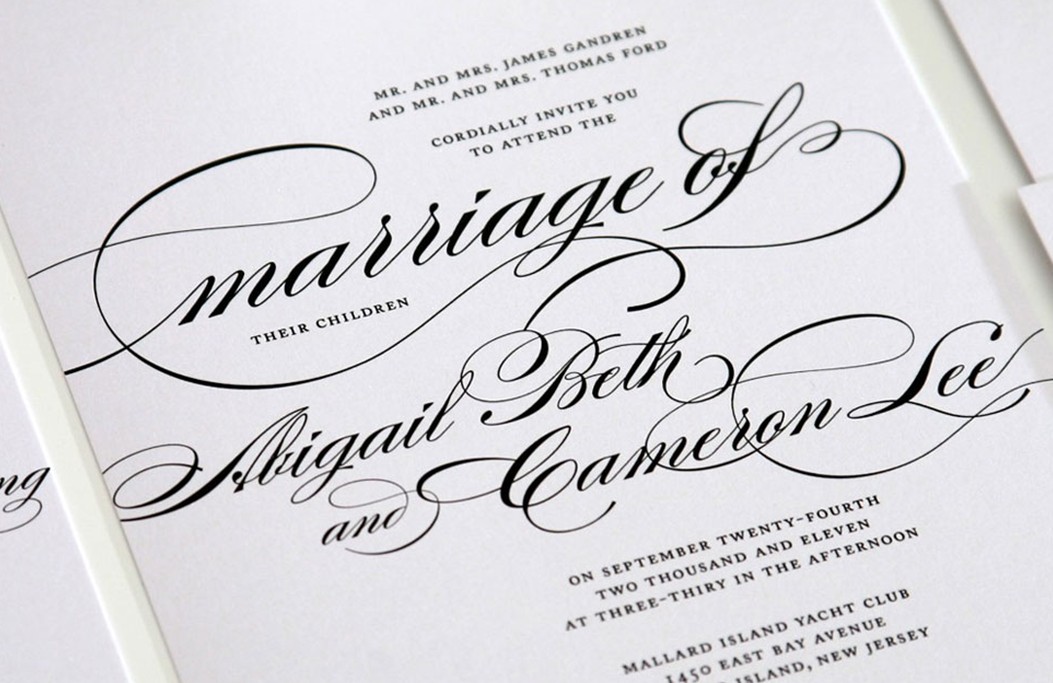 MR. AND MRS. JAMES GANDREN
AND MR. AND MRS. THOMAS FORD
CORDIALLY INVITE YOU
TO ATTEND THE
marriage of
THEIR CHILDREN
Abigail Beth
and Cameron Lee
ON SEPTEMBER TWENTY-FOURTH
TWO THOUSAND AND ELEVEN
AT THREE-THIRY IN THE AFTERNOON
MALLARD ISLAND YACHT CLUB
1450 EAST BAY AVENUE
ISLAND, NEW JERSEY